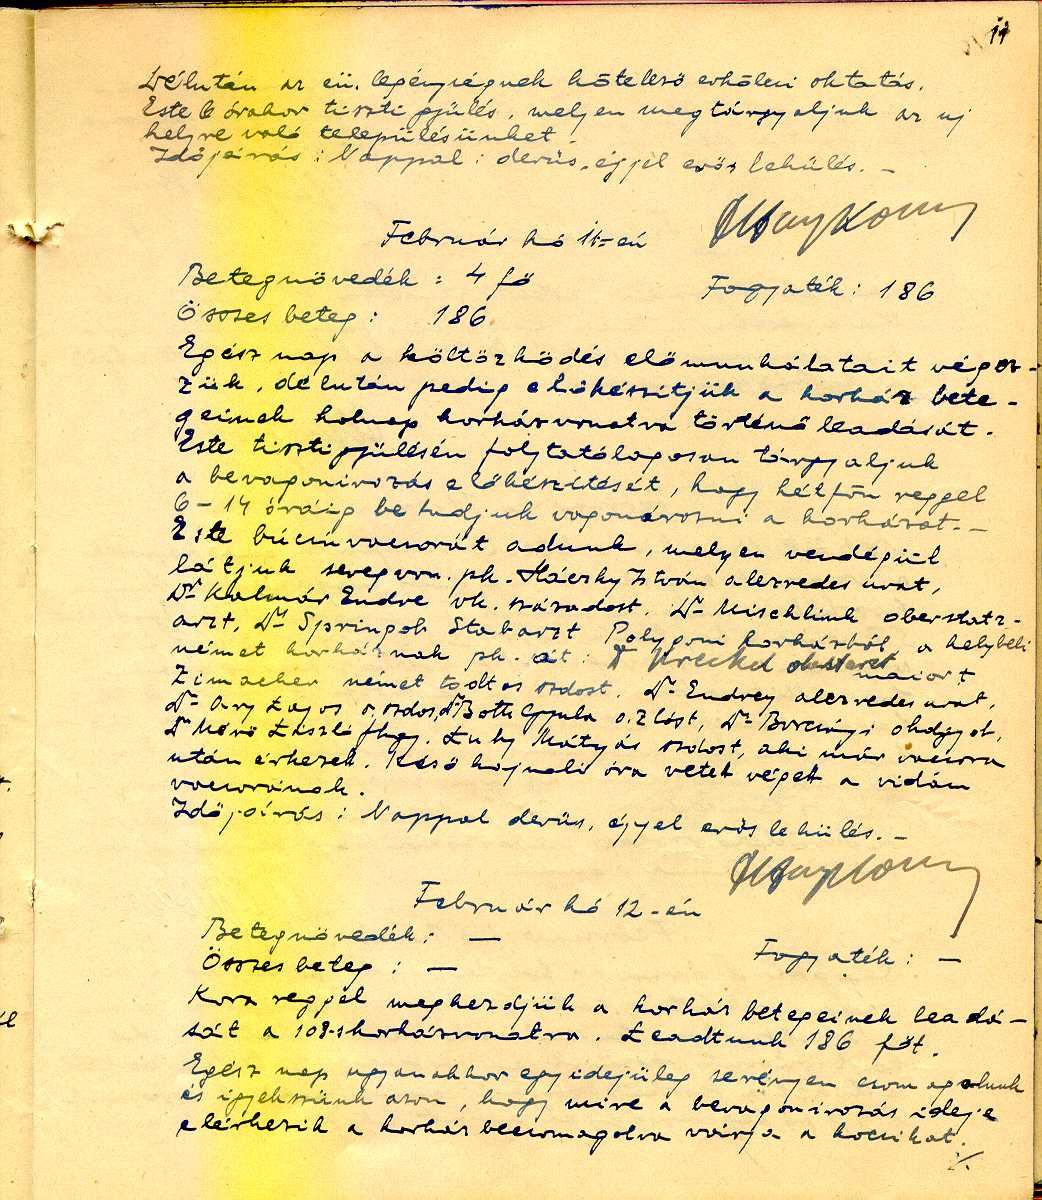 19
Délután az eü. legénységnek kötelező erkölcsi oktatás.
Este 6 órakor tiszti gyülés, melyen megtárgyaljuk az uj
helyre való településünket.
Időjárás: Nappal: derüs, éjjel erős lehülés. –
Február hó 11-én
Betegnövedék: 4 fő Fogyaték: 186
Összes beteg: 186
Egész nap a költözködés előmunkálatait végez-
zük, délután pedig előkészítjük a korház bete-
geinek holnap korházvonatra történő leadását.
Este tisztigyülésén folytatólagosan tárgyaljuk
a bevagonirozás előkészítését, hogy hétfőn reggel
6 – 14 óráig be tudjuk vagonirozni a korházat. –
Este búcsúvacsorát adunk, melyen vendégül
látjuk seregvon. pk. Háczky István alezredes urat,
Dr Kalmár Endre vk. századost. Dr Mischlink oberstabz-
arzt, Dr Springob Stabarzt Polygoni korházból, a helybeli
német korháznak pk. át: maiort
Zimacher német todtos szdost. Dr Endrey alezredes urat,
Dr Ary Lajos o. szdos, Dr Both Gyula o. zlóst, Dr
Dr László fhgy. Luky Mátyás szdost, aki már vacsora
után érkezett. Késő hajnali óra vetett véget a vidám
vacsorának.
Időjárás: Nappal derüs, éjjel erős lehülés. –
Február hó 12-én
Betegnövedék: — Fogyaték: —
Összes beteg: —
Kora reggel megkezdjük a korház betegeinek leadá-
sát a 108-s korházvonatra. Leadtunk 186 főt.
Egész nap ugyanakkor egyidejüleg serényen csomagolunk
és igyekszünk azon, hogy mire a bevagonirozás ideje
elérkezik a korház becsomagolva várja a kocsikat.
./.